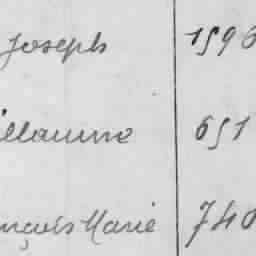 Joseph 1596
illaume 651
nçois Marie 740